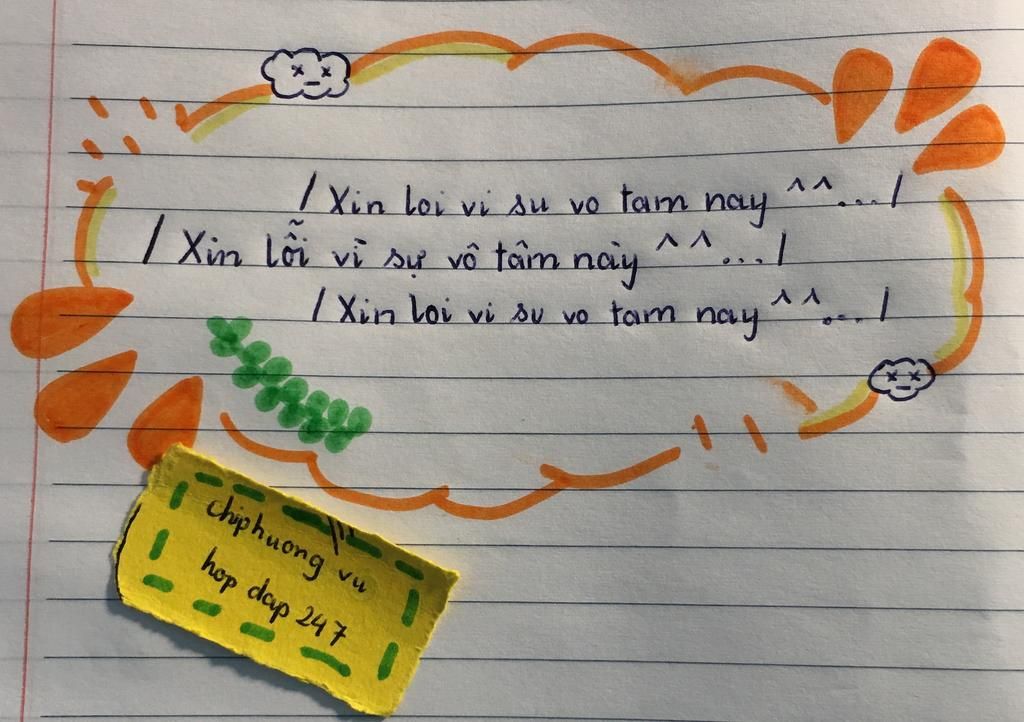 / Xin loi vi su vo tam nay ^^... /
/ Xin lỗi vì sự vô tâm này ^^... /
/ Xin loi vi su vo tam nay ^^... /
chiphuong vu
hop dap 247